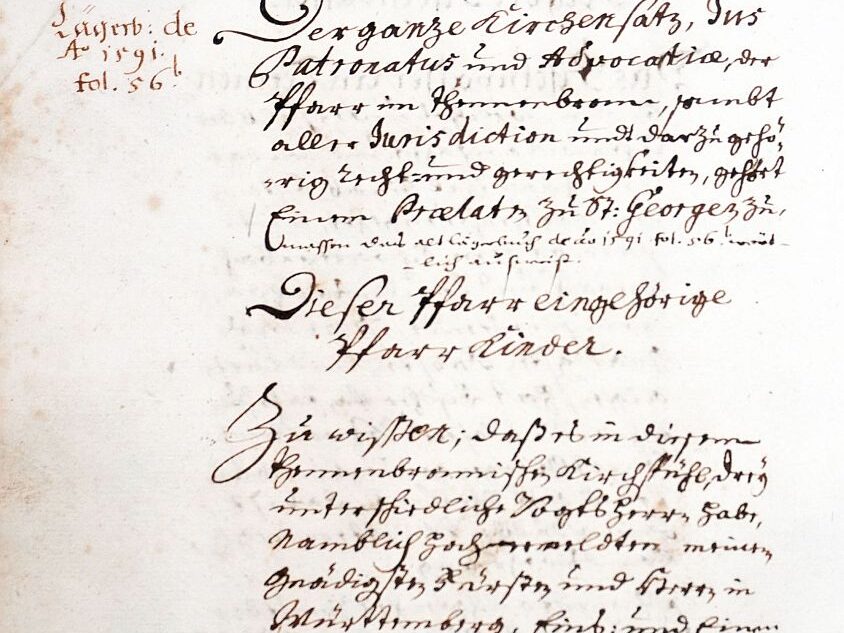 Lägerb: de
Aº 1591.
fol. 56b
Der ganze Kirchensatz, Jus
Patronatus und Advocatiæ, der
Pfarr im Thennenbronn, sambt
aller Jurisdiction und darzu gehö-
rig recht- und gerechtigkeiten, gehört
Einem Prælaten zu St: Georgen zu,
massen das alt Lägerbuch de aº 1591 fol. 56b würt-
lich außweißt.
Dieser Pfarr eingehörige
Pfarr Kinder.
Zu wissen; daß es in diesem
Thennenbronnischen Kirchspühl, drey
unterschiedliche Vogtsherrn habe,
Namblich hochermeldten meinen
Gnädigsten Fürsten und Herrn in
Württemberg, Eins: und Einen